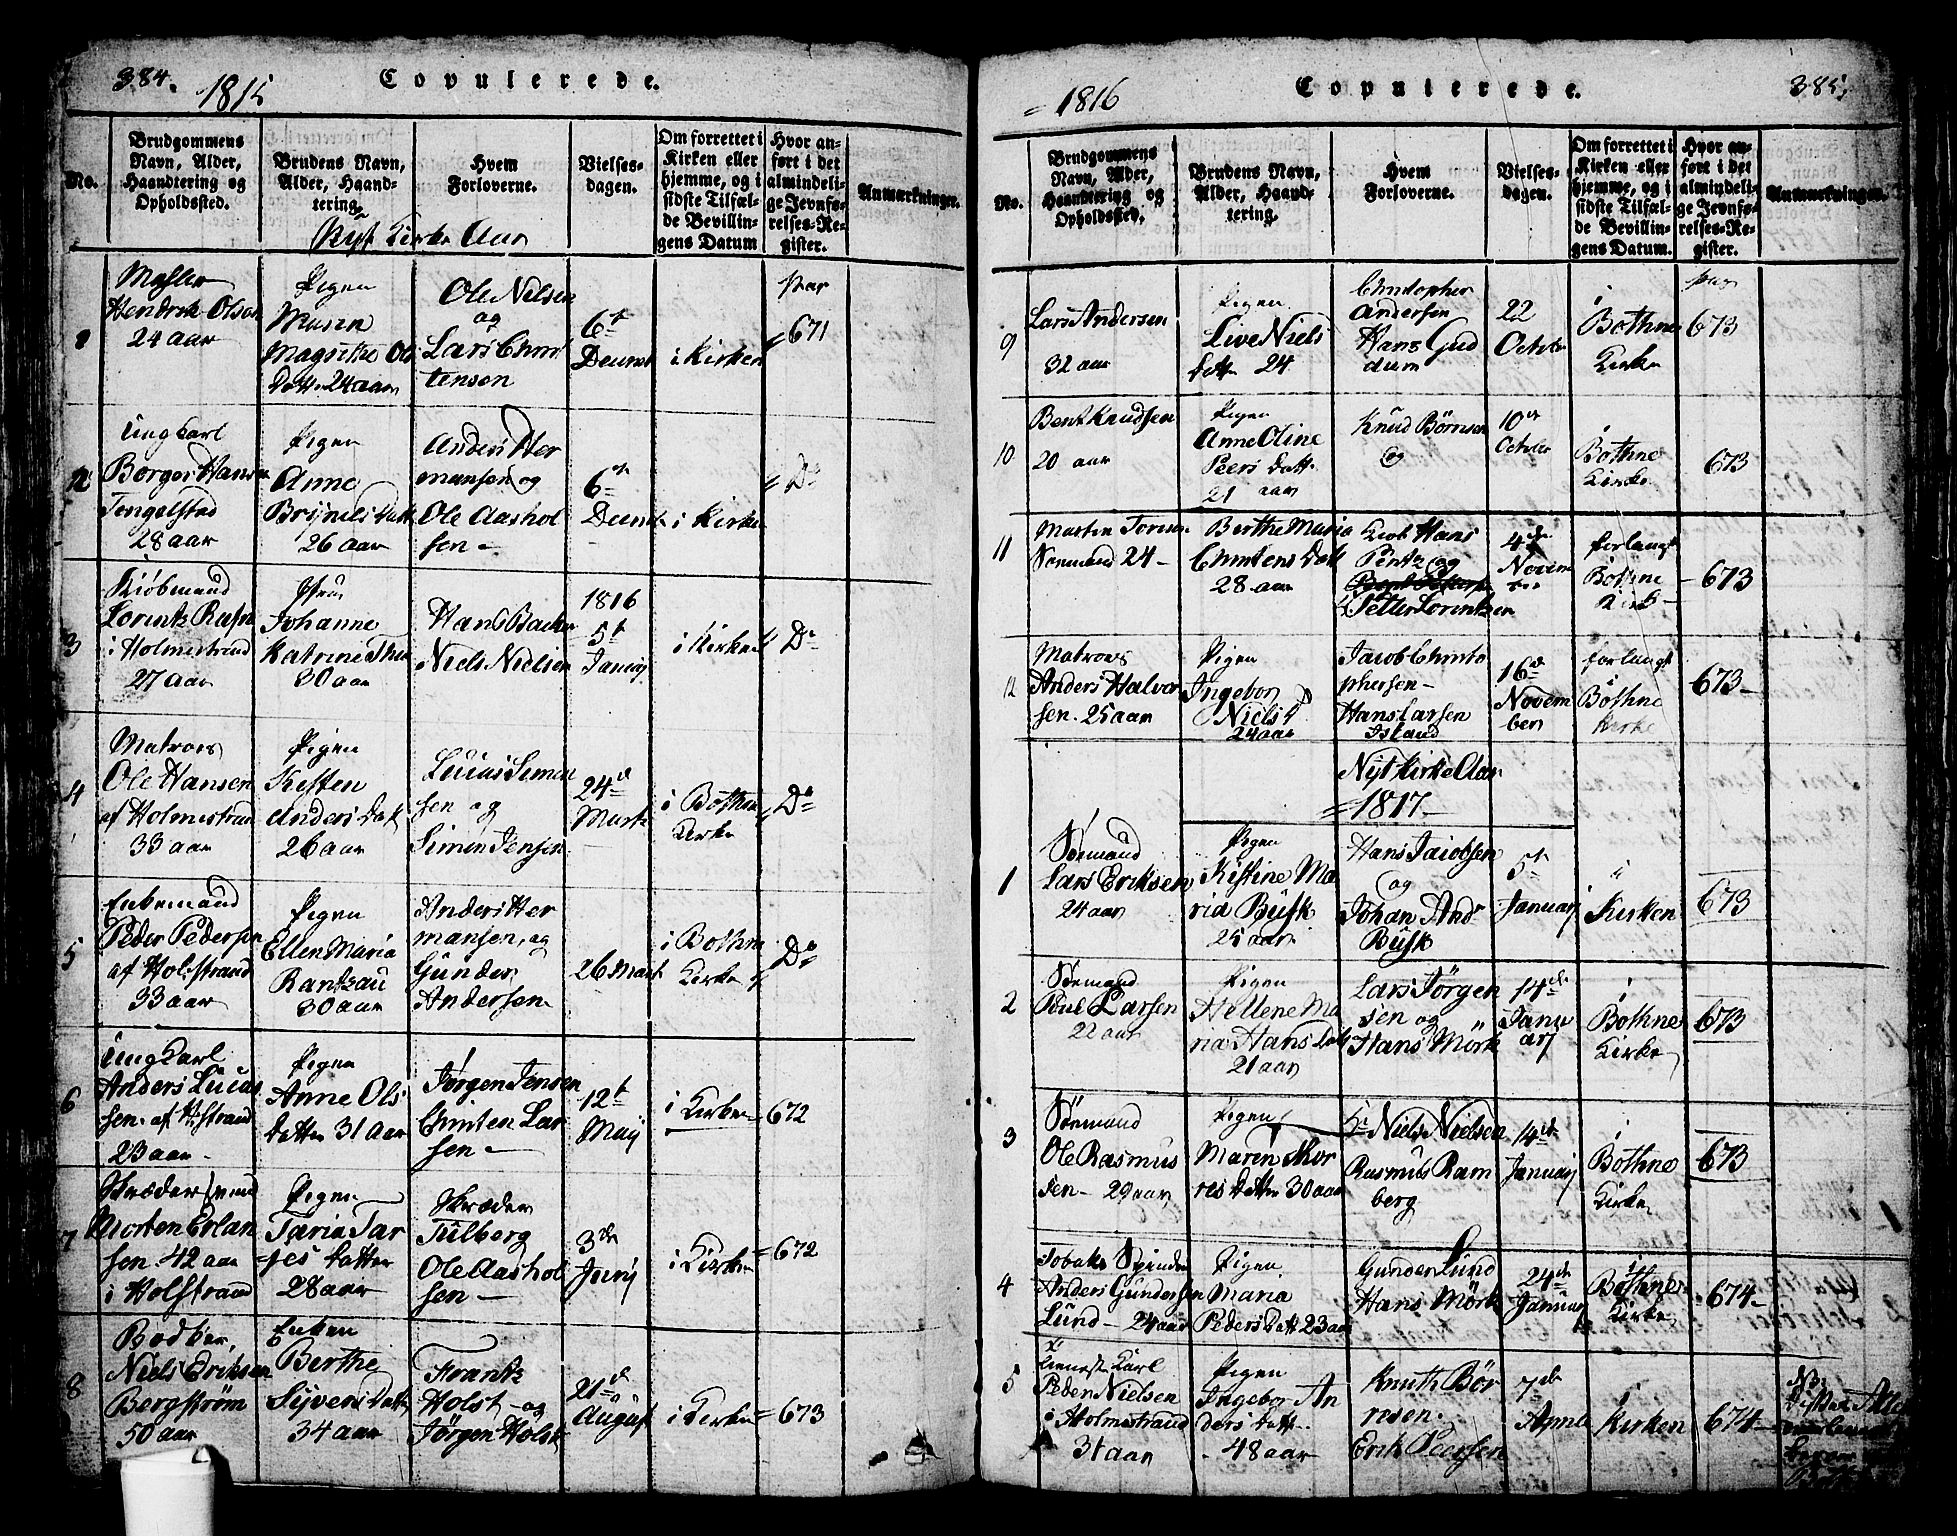 384.
1815
Copulerede.
No.
Brudgommens Navn, Alder, Haandtering og Opholdssted.
Brudens Navn, Alder, Haandtering.
Hvem Forloverne.
Vielsesdagen.
Om forrettet i Kirken eller hjemme, og i sidste Tilfælde Bevillingens Datum
Hvor anført i det almindelige Jevnførelses-Register.
Anmærkninger.
Nyt Kirke Aar
Hendrik Olsen
24 aar
Pigen
Maren
Magrethe Ols
Datter 24 aar
Ole Nilsen
og
Lars Chris
tensen
6te
Decembr
i Kirken
671
2
Ung Karl
Borger Hansen
Tengelstad
28 aar
Pigen
Anne
Brynils Datt
26 aar
Anders Her
mansen og
Ole Aashol
sen
6te
Decembr
i Kirken
Do
3
Kiöbmand
Lorentz Rasn
i Holmestrand
27 aar
Johanne
Katrine
30 aar
Hans Backe
Niels Nielsen
1816
5t
Januarj
i Kirken
Do
4
Matros
Ole Hansen
af Holmestrand
33 aar
Pigen
Kisten
Anders Datt
26 aar
Lucas Simen
sen og
Simen Jensen
24de
Marts
i Bothne
Kirke
Do
5
Enkemand
Peder Pedersen
af Holmstrand
33 aar
Pigen
Ellen Maria
Rantzau
30 aar
Anders Her
mansen, og
Gunder
Andersen
26 Mart
i Bothne
Kirke
Do
6
Ung Karl
Anders Lucas
sen af Hstrand
23 aar
Pigen
Anne Ols
Datter 31 aar
Jörgen Jensen
Christen Lar
sen
12t
Maij
i Kirken
672
7
Skrædersvend
Morten Erlan
sen 42 aar
i Holstrand
Pigen
Taria Tar
jes Datter
28 aar
Skræder
Tulberg
Ole Aashol
sen
3de
Junij
i Kirken
672
8
Bødker
Niels Eriksen
Bergström
50 aar
Enken
Berthe
Syvers Datt
34 aar
Frantz
Holst og
Jörgen Holst
21de
August
i Kirken
673
1816
Copulerede.
385
No.
Brudgommens Navn, Alder, Haandtering og Opholdssted.
Brudens Navn, Alder, Haandtering.
Hvem Forloverne.
Vielsesdagen.
Om forrettet i Kirken eller hjemme, og i sidste Tilfælde Bevillingens Datum.
Hvor anført i det almindelige Jevnførelses-Register.
Anmærkninger.
9
Lars Andersen
32 aar
Pigen
Live Niels
Datter 24
Christopher
Andersen
Hans Gud
dum
22
October
i
Bothne
Kirke
673
10
Bent Knudsen
20 aar
Pigen
Anne Oline
Peers Datt
21 aar
Knud Börresen
og
10de
October
i
Bothne
Kirke
673
11
Martin
Sömand 24
Berthe Maria
Christens Datt
28 aar
Hans
Pentz og
Petter Lorentzen
4de
Novem
ber
forlangt
Bothne
Kirke
673
12
Matros
Anders Halvor
sen 25 aar
Pigen
Ingebor
Niels D
24 aar
Jacob Christo
phersen
Hans Larsen
Island
16de
Novem
ber
forlangt
i
Bothne
Kirke
673
Nyt Kirke Aar
1817
1
Sömand
Lars Eriksen
24 aar
Pigen
Kistine Ma
ria Busk
25 aar
Hans Jacobsen
og
Johan Andr
Busk
5t
Januarj
i
Kirken
673
2
Sömand
Poul Larsen
22 aar
Pigen
Hellene Ma
ria Hans Datt
21 aar
Lars Jörgen
sen og
Hans Mörk
14de
Janu
arj
i
Bothne
Kirke
673
3
Sömand
Ole Rasmus
sen 29 aar
Pigen
Maren Thor
res Datter 30 aar
Niels Nielsen
Rasmus Ram
berg
14de
Januarj
i
Bothne
Kirke
673
4
Tobaks Spinder
Anders Gundersen
Lund 24 aar
Pigen
Maria
Peders Datt 23 aar
Gunder Lund
Hans Mörk
24de
Januar
i
Bothne
Kirke
674
5
Karl
Peder Nielsen
i Holmestrand
31 aar
Pigen
Ingebor An
ders Datt
48 aar
Knuth Bör
resen
Erik Peersen
7de
April
i Kirken
674